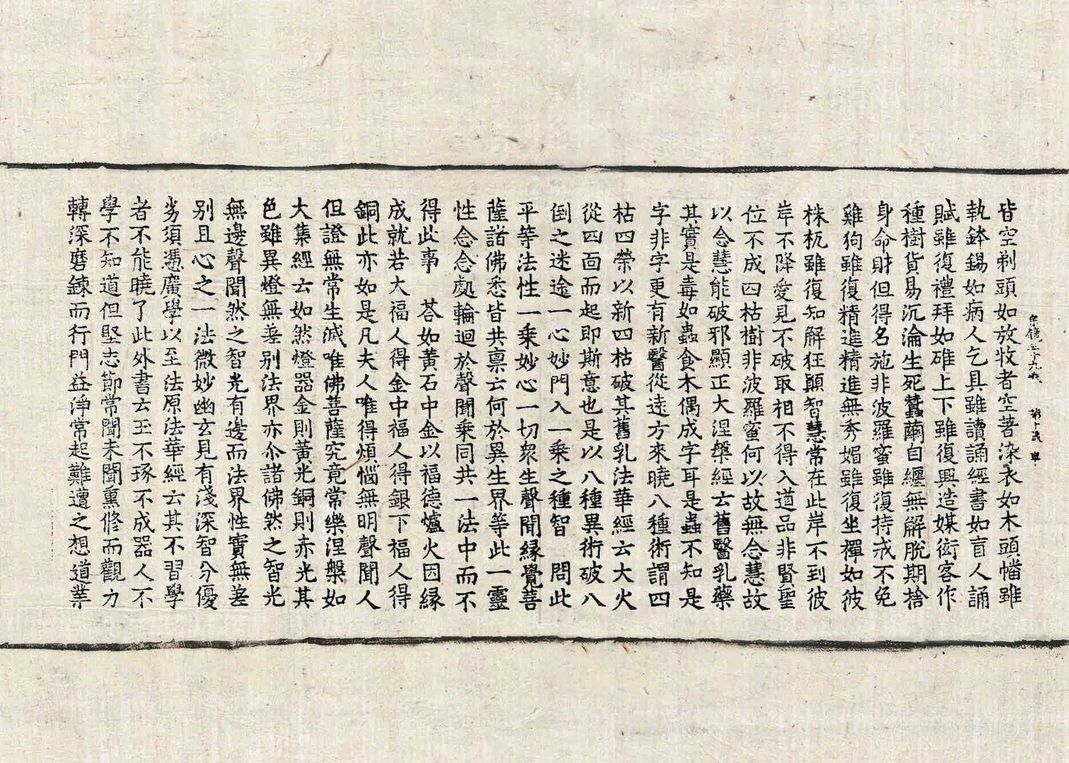 皆空剃頭如放牧者空著染衣如木頭幡雖
執鉢錫如病人乞具雖讀誦經書如盲人誦
賦雖復禮拜如碓上下雖復興造媒衒客作
種樹貨易沉淪生死蠶繭自纏無解脫期捨
身命財但得名施非波羅蜜雖復持戒不免
雞狗雖復精進精進無秀媚雖復坐禪如彼
株杌雖復知解狂顛智慧常在此岸不到彼
岸不降愛見不破取相不得入道品非賢聖
位不成四枯樹非波羅蜜何以故無念慧故
以念慧能破邪顯正大涅槃經云舊醫乳藥
其實是毒如蟲食木偶成字耳是蟲不知是
字非字更有新醫從遠方來曉八種術謂四
枯四榮以新四枯破其舊乳法華經云大火
從四面而起即斯意也是以八種異術破八
倒之迷途一心妙門入一乘之種智 問此
平等法性一乘妙心一切衆生聲聞緣覺菩
薩諸佛悉皆共禀云何於異生界等此一靈
性念念念處輪迴於聲聞乘同共一法中而不
得此事 荅如黃石中金以福德爐火因緣
成就若大福人得金中福人得銀下福人得
銅此亦如是凡夫人唯得煩惱無明聲聞人
但證無常生滅唯佛菩薩究竟常樂涅槃如
大集經云如然燈器金則黃光銅則赤光其
色雖異燈無差别法界亦尒諸佛然之智光
無邊聲聞然之智光有邊而法界性實無差
别且心之一法微妙幽玄見有淺深智分優
劣須憑廣學以至法原法華經云其不習學
者不能曉了此外書云玉不琢不成器人不
學不知道但堅志節常聞未聞熏修而觀力
轉深磨鍊而行門益淨常起難遭之想道業